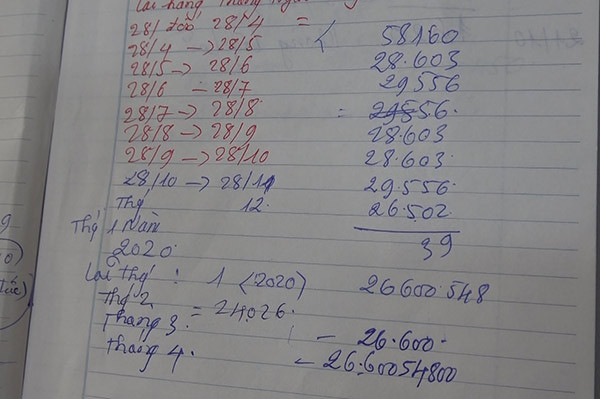 Lãi hàng tháng
28/ đến 28/4 = 58160
28/4 → 28/5 28.603
28/5 → 28/6 29556
28/6 – 28/7 = 29556.
28/7 → 28/8 28.603
28/8 → 28/9 28.603.
28/9 → 28/10 29.556
28/10 → 28/11 26.502
Thg 12. 39
Thg 1 Năm
2020
Lãi Thg : 1 (2020) 26.600.548
Thg 2 = 24.026.
Tháng 3. – 26.600.
Tháng 4. – 26.60054800